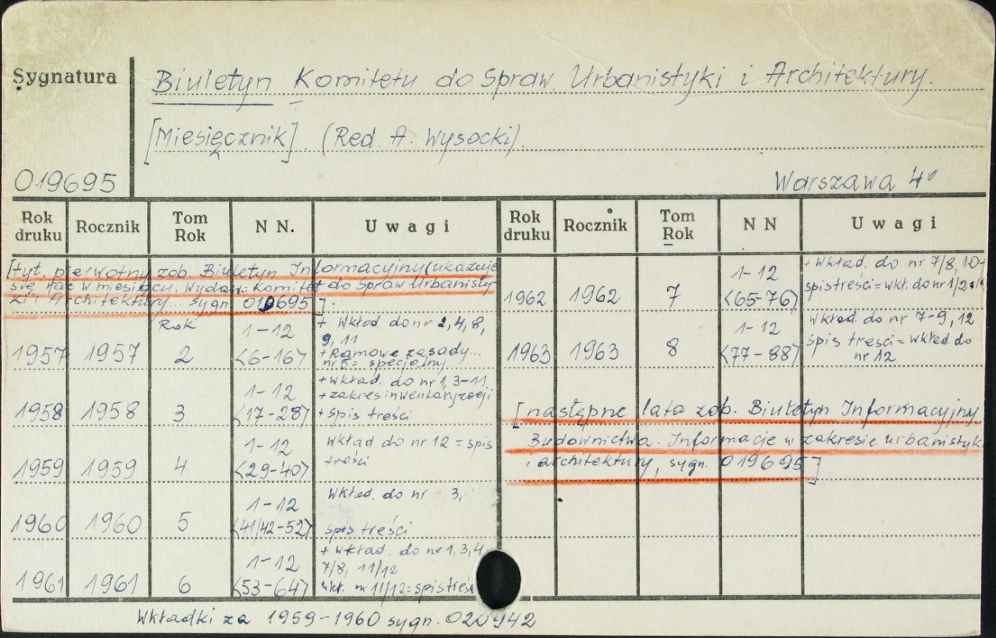 Sygnatura
Biuletyn Komitetu do Spraw Urbanistyki i Architektury.
[Miesięcznik]. (Red A. Wysocki).
019695
Warszawa 4°
Rok druku Rocznik Tom Rok N N. Uwagi
[tyt. pierwotny zob. Biuletyn Informacyjny (ukazuje
się raz w miesiącu. Wydaw: Komitet do Spraw Urbanisty
ki i Architektury... sygn. 019695].
Rok
1957 1957 2 1-12 <6-16> + Wkład do nr 2, 4, 8, 9, 11
+ Ramowe zasady...
nr 6 = specjalny
1958 1958 3 1-12 <17-28> + wkład. do nr 1, 3-11
+ zakres inwentaryzacji
+ spis treści
1959 1959 4 1-12 <29-40> Wkład do nr 12 = spis
treści
1960 1960 5 1-12 <41/42-52> Wkład. do nr 3,
spis treści
1961 1961 6 1-12 <53-64> + wkład. do nr 1, 3, 4
7/8, 11/12
wkł. nr 11/12 = spis treści
Rok druku Rocznik Tom Rok N N Uwagi
1962 1962 7 1-12 <65-76> + wkład. do nr 7/8, 10+
spis treści = wkł. do nr 1/2
1963 1963 8 1-12 <77-88> Wkład do nr 7-9, 12
spis treści = wkład do
nr 12
[następne lata zob. Biuletyn Informacyjny
Budownictwa. Informacje w zakresie urbanistyk
i architektury, sygn. 019695]
Wkładki za 1959-1960 sygn. 020942